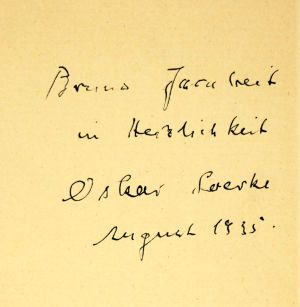 Bruno
in Herzlichkeit
Oskar Loerke
August 1935.